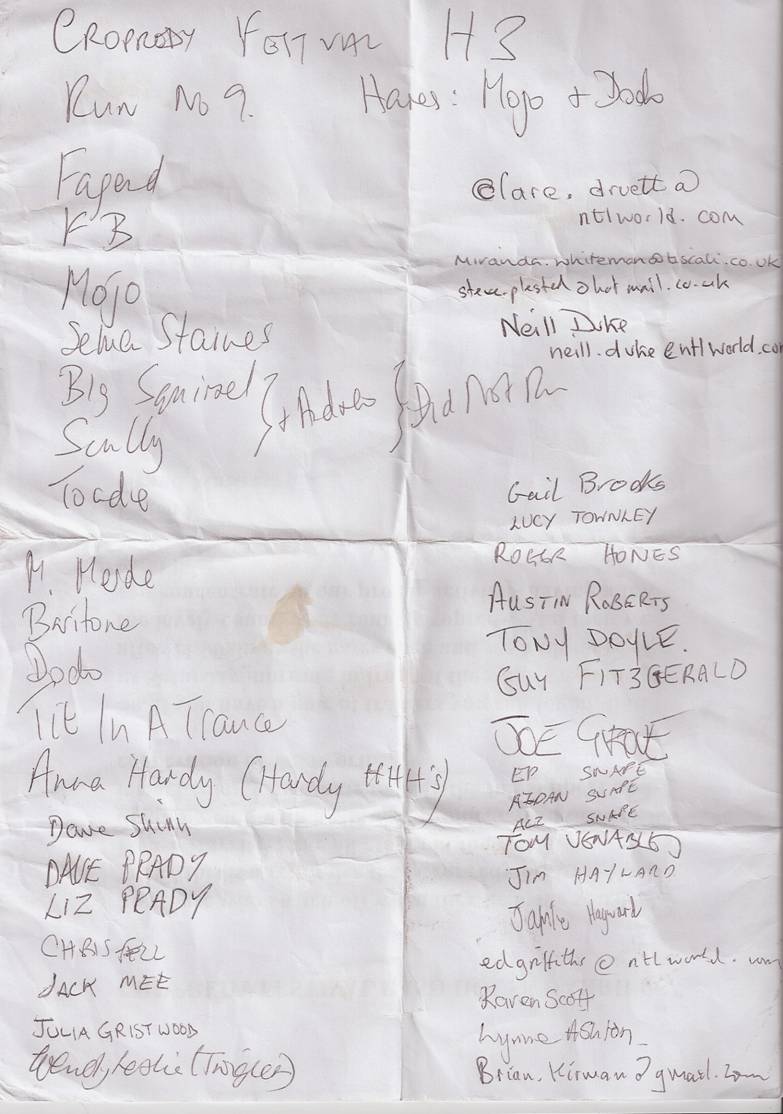 CROPREDY FESTIVAL H3
Run No 9. Hares: Mojo + Dodo
Fagend
KB
Mojo
Selma Staines
Big Squirrel
Scully
} + Andrew } Did Not Run
Toadie
M. Merde
Baritone
Dodo
Tit In A Trance
Anna Hardy (Hardy HHH's)
Dave Shinn
DAVE PRADY
LIZ PRADY
CHRIS FELL
JACK MEE
JULIA GRISTWOOD
Wendy Leslie
Clare.druett@
ntlworld.com
Miranda.whiteman@tiscali.co.uk
steve.plested@hotmail.co.uk
Neill Duke
neill.duke@ntlworld.com
Gail Brooks
LUCY TOWNLEY
ROGER HONES
AUSTIN ROBERTS
TONY DOYLE.
GUY FITZGERALD
JOE GROVE
ED SNAPE
AIDAN SNAPE
ALI SNAPE
TOM VENABLES
JIM HAYWARD
Jamie Hayward
edgriffiths@ntlworld.com
Karen Scott
Lynne Ashton
Brian.Kirwan@gmail.com